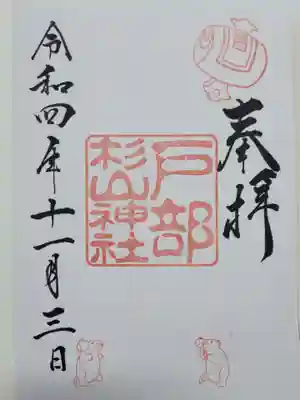 奉拝
戸部
杉山神社
令和四年十一月三日